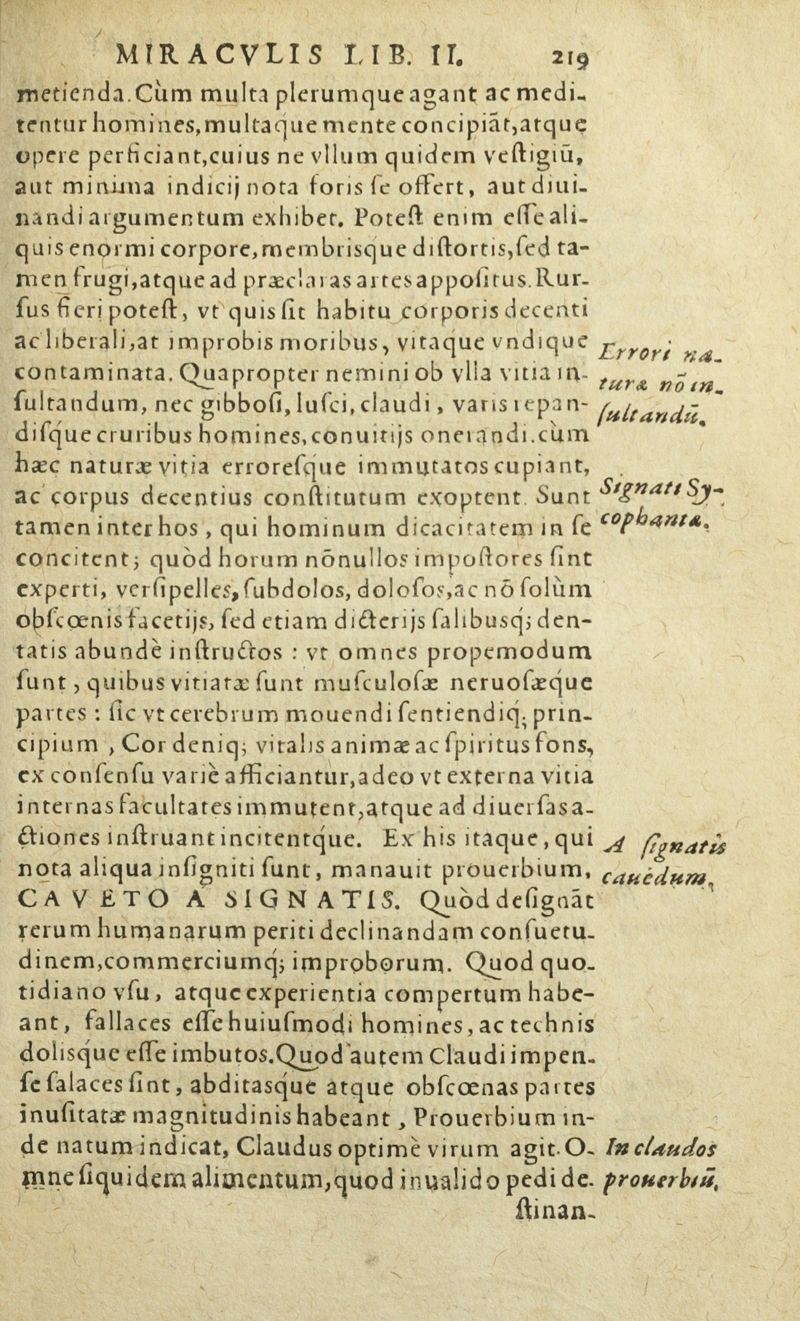 MIRACVLIS LIB. II. 219
metienda. Cùm multa plerumque agant ac medi-
tentur homines, multaque mente concipiāt, atque
opere perficiant, cuius ne vllum quidem veſtigiū,
aut minima indicij nota foris ſe offert, aut diui-
nandi argumentum exhibet. Poteſt enim eſſe ali-
quis enormi corpore, membrisque diſtortis, ſed ta-
men frugi, atque ad præclaras artes appoſitus. Rur-
ſus fieri poteſt, vt quis ſit habitu corporis decenti
ac liberali, at improbis moribus, vitaque vndique
contaminata. Quapropter nemini ob vlla vitia in-
ſultandum, nec gibboſi, luſci, claudi, varis repan-
diſque cruribus homines, conuitijs onerandi. cùm
hæc naturæ vitia erroreſque immutatos cupiant,
ac corpus decentius conſtitutum exoptent. Sunt
tamen inter hos, qui hominum dicacitatem in ſe
concitent; quòd horum nōnullos impoſtores ſint
experti, verſipelles, ſubdolos, doloſos, ac nō ſolùm
obſcœnis facetijs, ſed etiam dicterijs ſalibusq; den-
tatis abundè inſtructos : vt omnes propemodum
ſunt, quibus vitiatæ ſunt muſculoſæ neruoſæque
partes : ſic vt cerebrum mouendi ſentiendiq; prin-
cipium, Cor deniq; vitalis animæ ac ſpiritus fons,
ex conſenſu variè afficiantur, adeo vt externa vitia
internas facultates immutent, atque ad diuerſas a-
ctiones inſtruant incitentque. Ex his itaque, qui
nota aliqua inſigniti ſunt, manauit prouerbium,
CAVETO A SIGNATIS. Quòd deſignāt
rerum humanarum periti declinandam conſuetu-
dinem, commerciumq; improborum. Quod quo-
tidiano vſu, atque experientia compertum habe-
ant, fallaces eſſe huiuſmodi homines, ac technis
dolisque eſſe imbutos. Quod autem Claudi impen-
ſe ſalaces ſint, abditasque atque obſcœnas partes
inuſitatæ magnitudinis habeant, Prouerbium in-
de natum indicat, Claudus optimè virum agit. O-
mne ſiquidem alimentum, quod inualido pedi de-
ſtinan-
Errori na-
turæ nō in-
ſultandū.
Signati Sy-
cophantæ.
A ſignatis
cauēdum.
In claudos
prouerbiū.